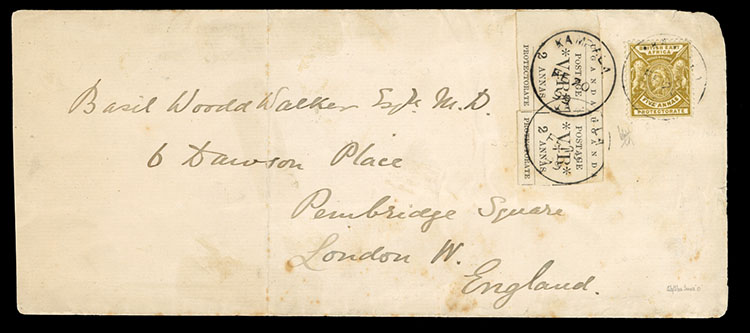 Basil Woodd Walker Esq. M.D.
6 Dawson Place
Pembridge Square
London W.
England.
UGANDA
POSTAGE
*V.R*
2 ANNAS
PROTECTORATE
UGANDA
POSTAGE
*V.R*
2 ANNAS
PROTECTORATE
KAMPALA
BRITISH EAST
AFRICA
FIVE ANNAS
PROTECTORATE